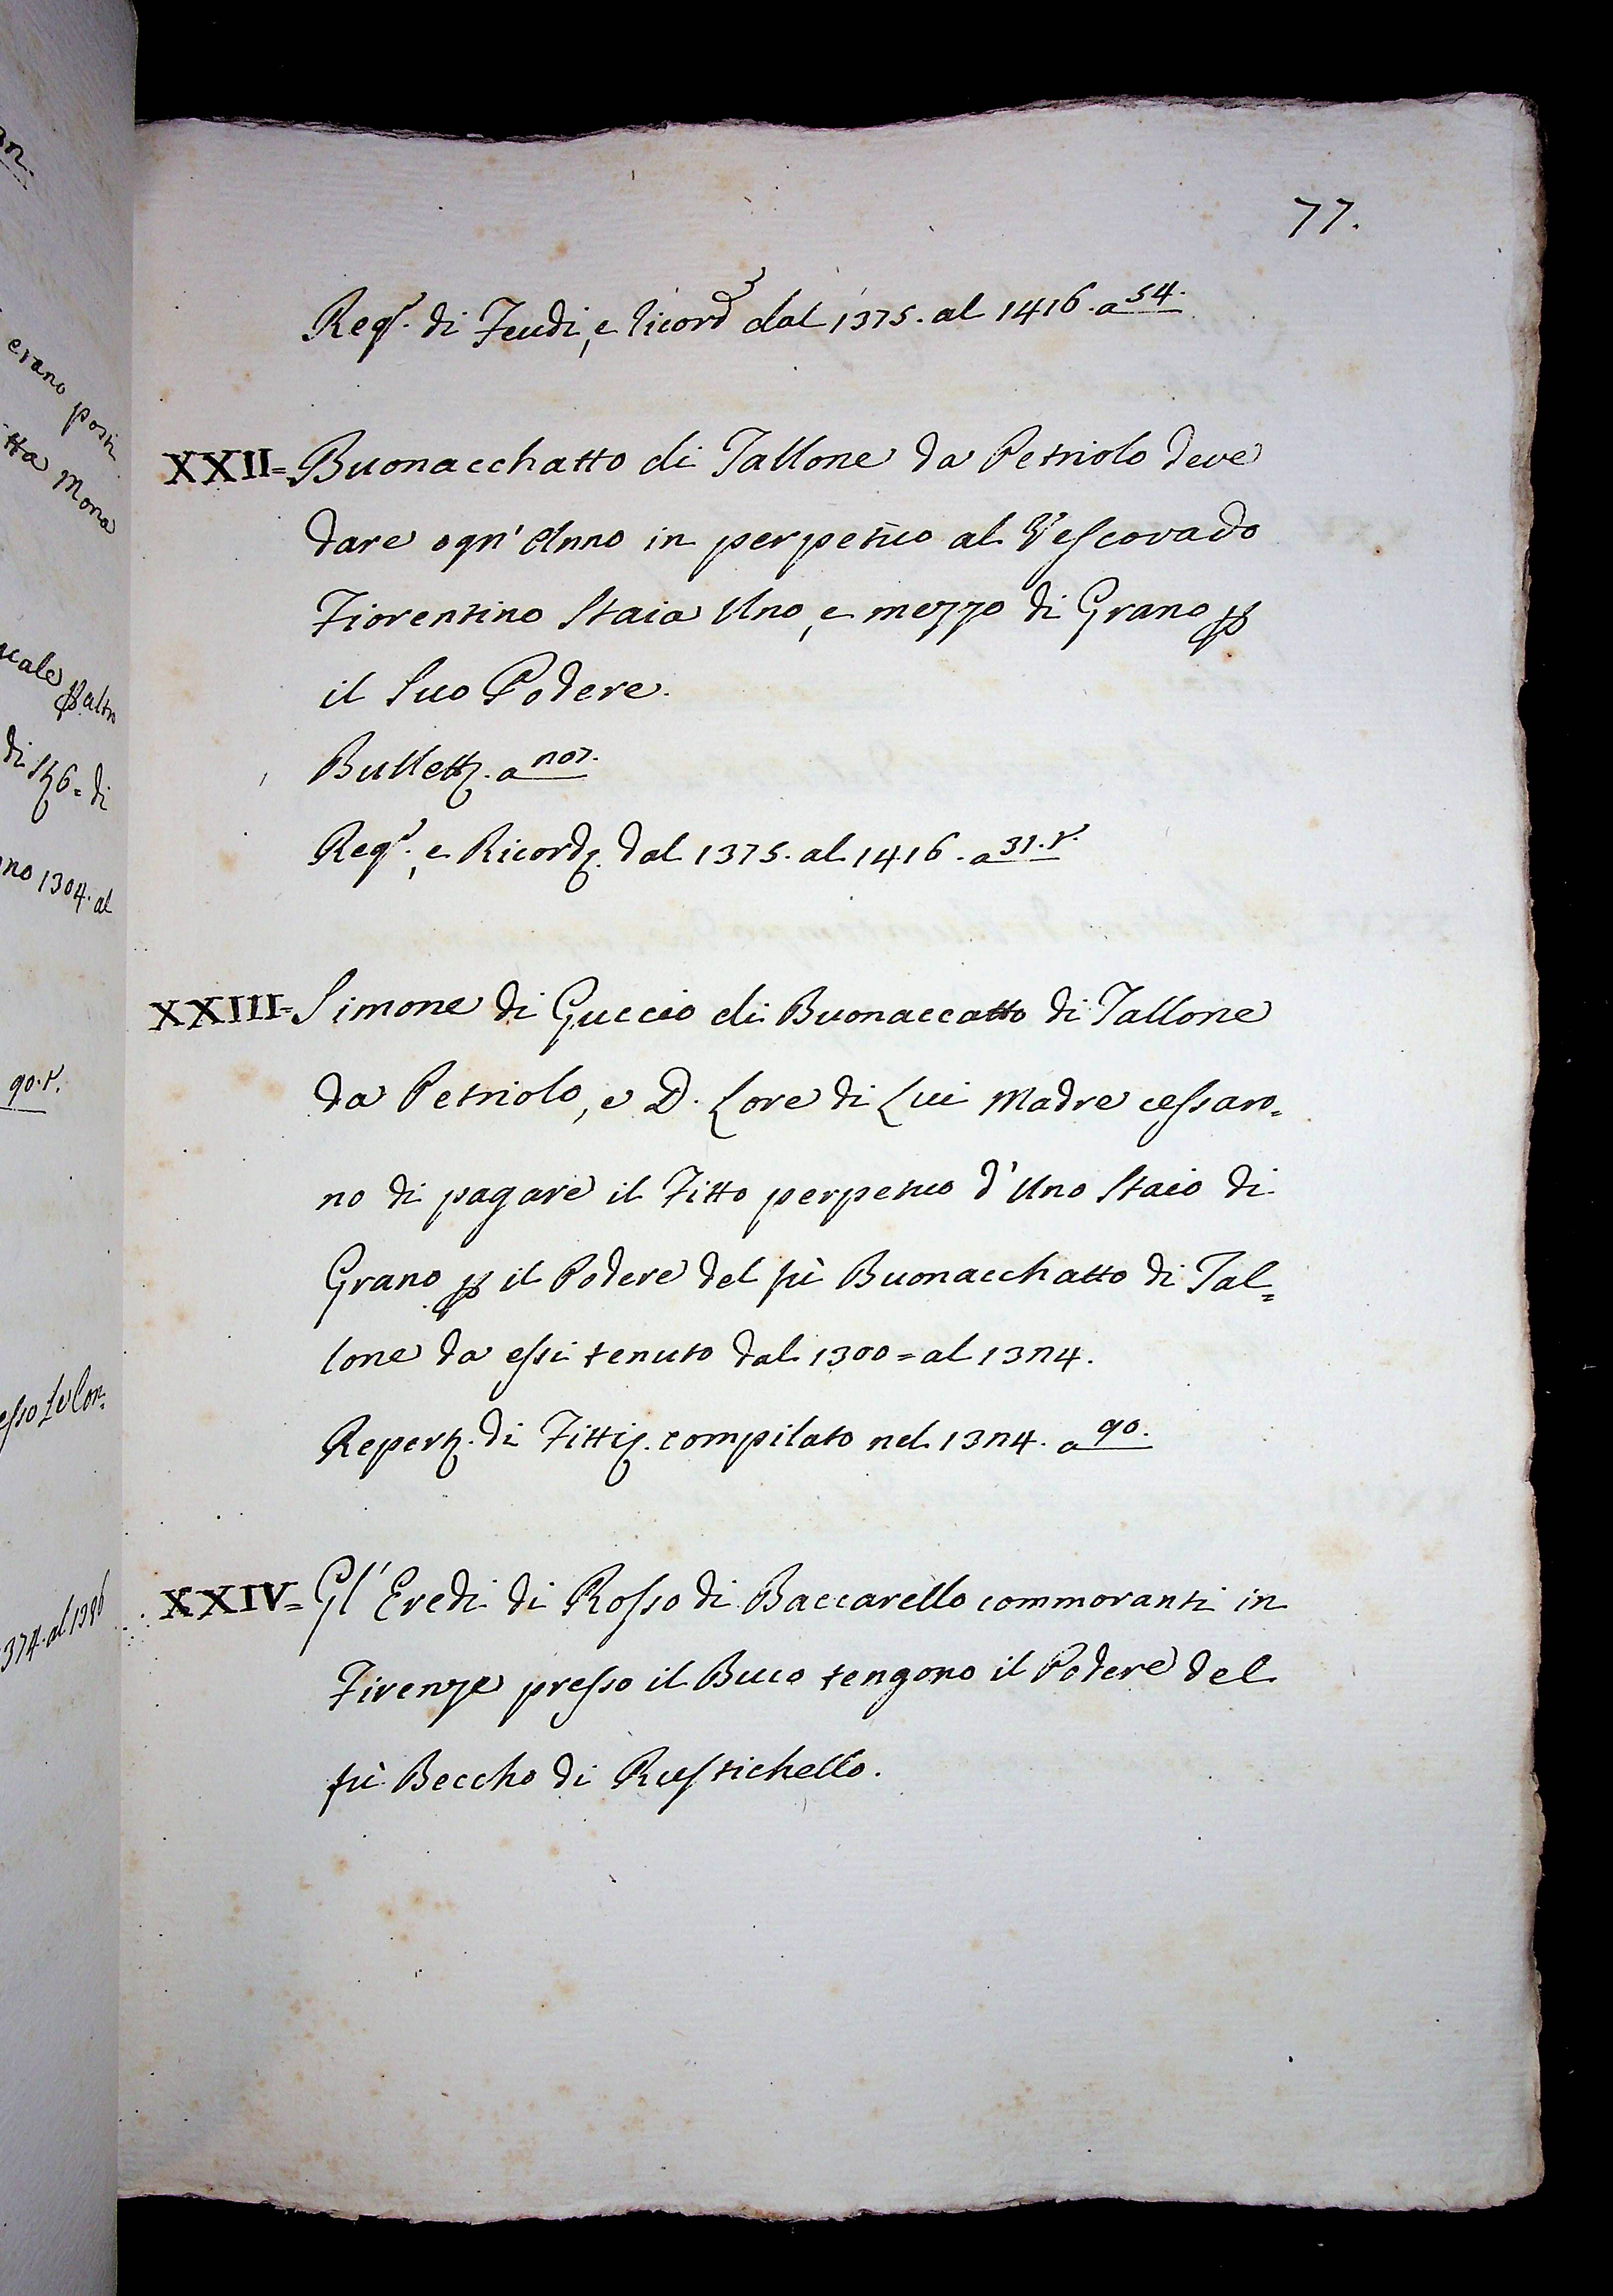 77.
Reg.º di Feudi, e ricord dal 1375. al 1416. a 54.
XXII= Buonacchatto di Tallone da Petriolo deve
dare ogn' Anno in perpetuo al Vescovado
Fiorentino Staia Uno, e mezzo di Grano p
il Suo Podere.
Bullett. a
Reg.º, e Ricord. dal 1375. al 1416. a 31. r.
XXIII= Simone di Guccio di Buonaccatto di Tallone
da Petriolo, e D. Lore di Lui Madre cessaro=
no di pagare il Fitto perpetuo d'Uno Staio di
Grano p il Podere del fù Buonacchatto di Tal=
lone da essi tenuto dal 1300= al 1324.
Repert. di Fitti. compilato nel 1324. a 90.
XXIV= Gl' Eredi di Rosso di Baccarello commoranti in
Firenze presso il Buco tengono il Podere del
fù Beccho di Rustichello.
erano posti
tta Mona
altro
di
no 1304. al
90. r.
374. al 1396